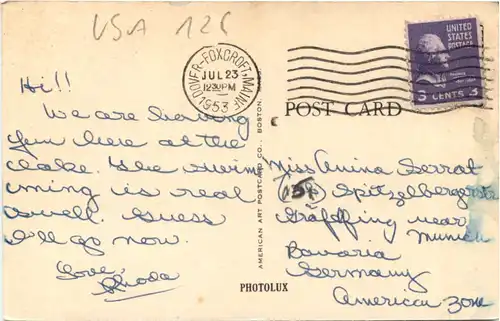 USA 126
DOVER-FOXCROFT, MAINE
JUL 23
12 30 PM
1953
UNITED
STATES
POSTAGE
3 CENTS 3
POST CARD
Hi!!
We are having
fun here at the
lake. The swim
ming is real
swell. Guess
I'll go now.
Love,
Rhoda
Miss Anina Serrat
Spitzelbergerstr
Gräfelfing near
Munich
Bavaria
Germany
American Zone
AMERICAN ART POSTCARD CO., BOSTON.
PHOTOLUX